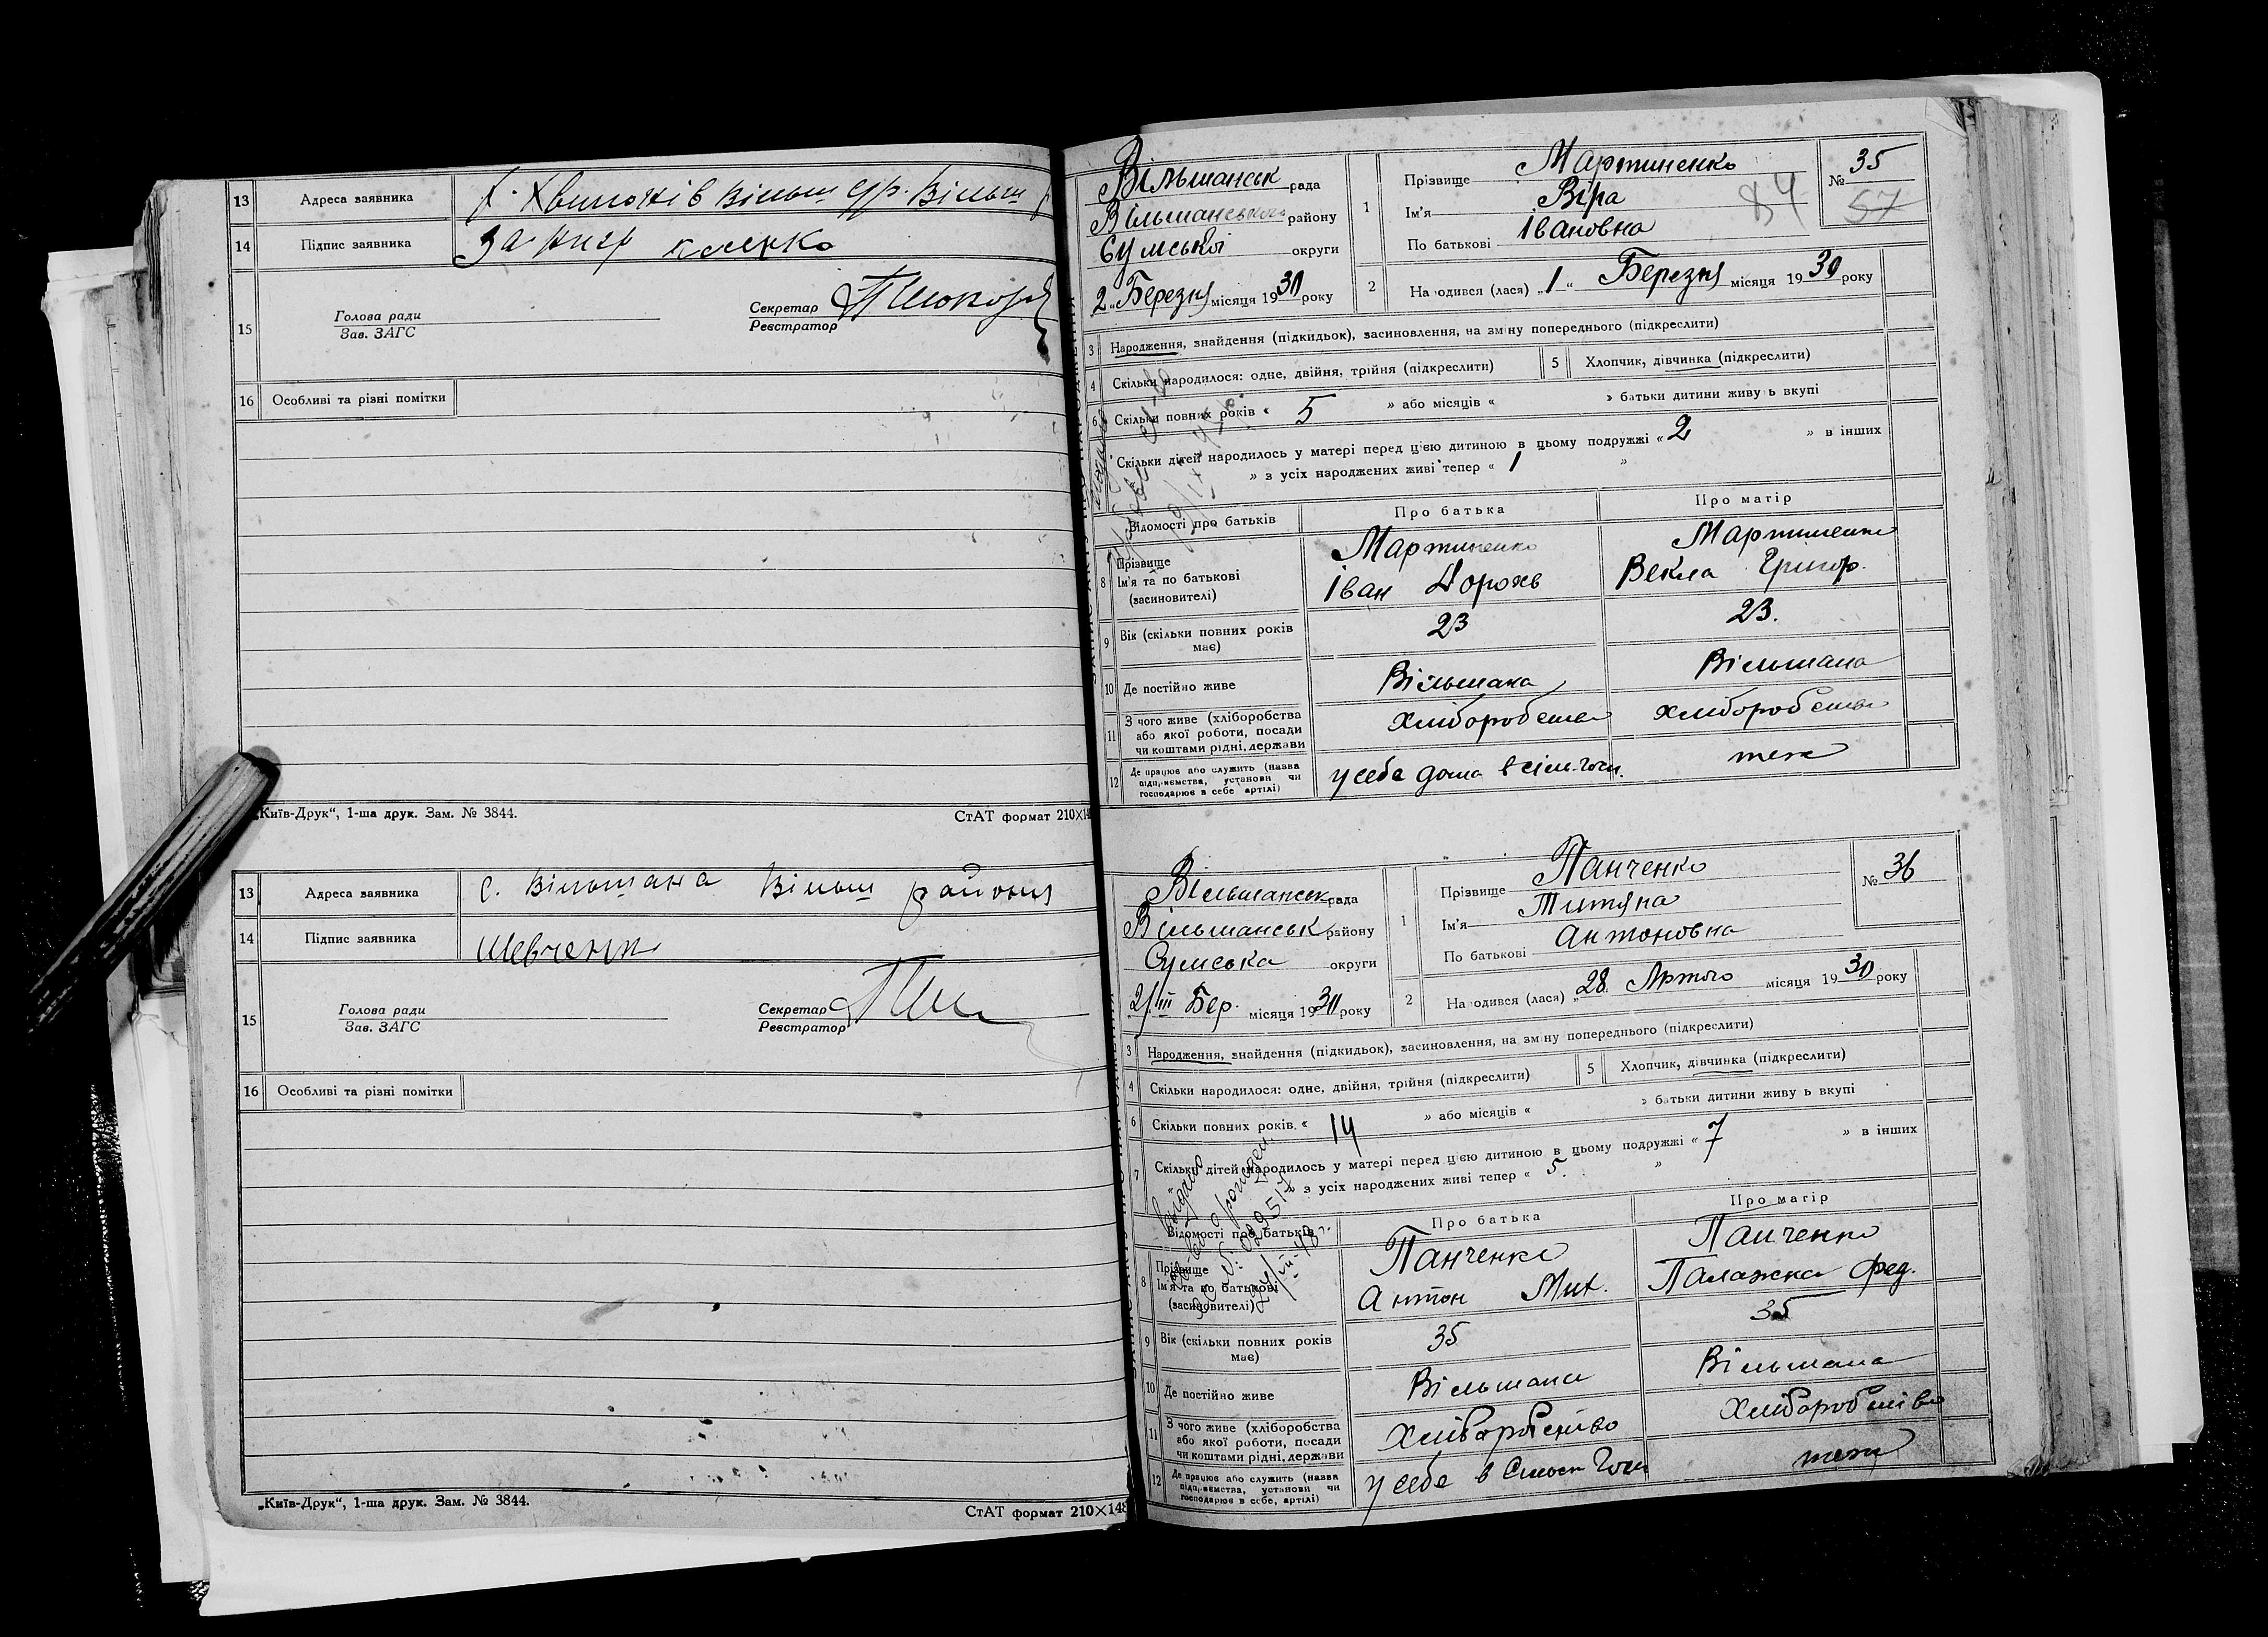 13 Адреса заявника
14 Підпис заявника За нигр
15 Голова ради
Зав. ЗАГС
Секретар
Реєстратор
16 Особливі та різні помітки
„Київ-Друк“, 1-ша друк. Зам. № 3844.
СтАТ формат 210×14
13 Адреса заявника с. Вільшана Вільш району
14 Підпис заявника Шевченко
15 Голова ради
Зав. ЗАГС
Секретар
Реєстратор
16 Особливі та різні помітки
„Київ-Друк“, 1-ша друк. Зам. № 3844.
СтАТ формат 210×148
Вільшанськ рада
Вільшанського району
Сумської округи
2 „ Березня місяця 1930 року
1 Прізвище Мартиненко
Ім'я Віра
По батькові Івановна
№ 35
57
84
2 На одився (лася) „1“ Березня місяця 1930 року
3 Народження, знайдення (підкидьок), засиновлення, на зміну попереднього (підкреслити)
4 Скільки народилося: одне, двійня, трійня (підкреслити)
5 Хлопчик, дівчинка (підкреслити)
6 Скільки повних років « 5 » або місяців « » батьки дитини живуь вкупі
Скільки дітей народилось у матері перед цією дитиною в цьому подружжі « 2 » в інших
» з усіх народжених живі тепер « 1 »
Відомості про батьків Про батька Про матір
8 Прізвище Мартиненко Мартиненко
Ім'я та по батькові Іван Дорохв Векла Григор.
(засиновителі)
9 Вік (скільки повних років має) 23 23.
10 Де постійно живе Вільшана Вільшана
11 З чого живе (хліборобства або якої роботи, посади чи коштами рідні, держави
Хліборобство Хліборобство
12 Де працює або служить (назва підприємства, установи чи господарює в себе артілі)
у себе дома в сільгосп. теж
Вільшанськ рада
Вільшанськ району
Сумська округи
2/III Бер. місяця 1930 року
1 Прізвище Панченко
Ім'я Титяна
По батькові Антоновна
№ 36
2 На одився (лася) „28. Лютого місяця 1930 року
3 Народження, знайдення (підкидьок), засиновлення, на зміну попереднього (підкреслити)
4 Скільки народилося: одне, двійня, трійня (підкреслити)
5 Хлопчик, дівчинка (підкреслити)
6 Скільки повних років « 14 » або місяців « » батьки дитини живу ь вкупі
7 Скільки дітей народилось у матері перед цією дитиною в цьому подружжі « 7 » в інших
» з усіх народжених живі тепер « 5. »
Відомості про батьків Про батька Про матір
8 Прізвище Панченко Панченко
Ім'я та по батькові Антон Мих. Палажка Фед.
(засиновителі)
9 Вік (скільки повних років має) 35 35
10 Де постійно живе Вільшана Вільшана
11 З чого живе (хліборобства або якої роботи, посади чи коштами рідні, держави
Хліборобство Хліборобство
12 Де працює або служить (назва підприємства, установи чи господарює в себе, артілі)
у себе в Сільськ Госп теж